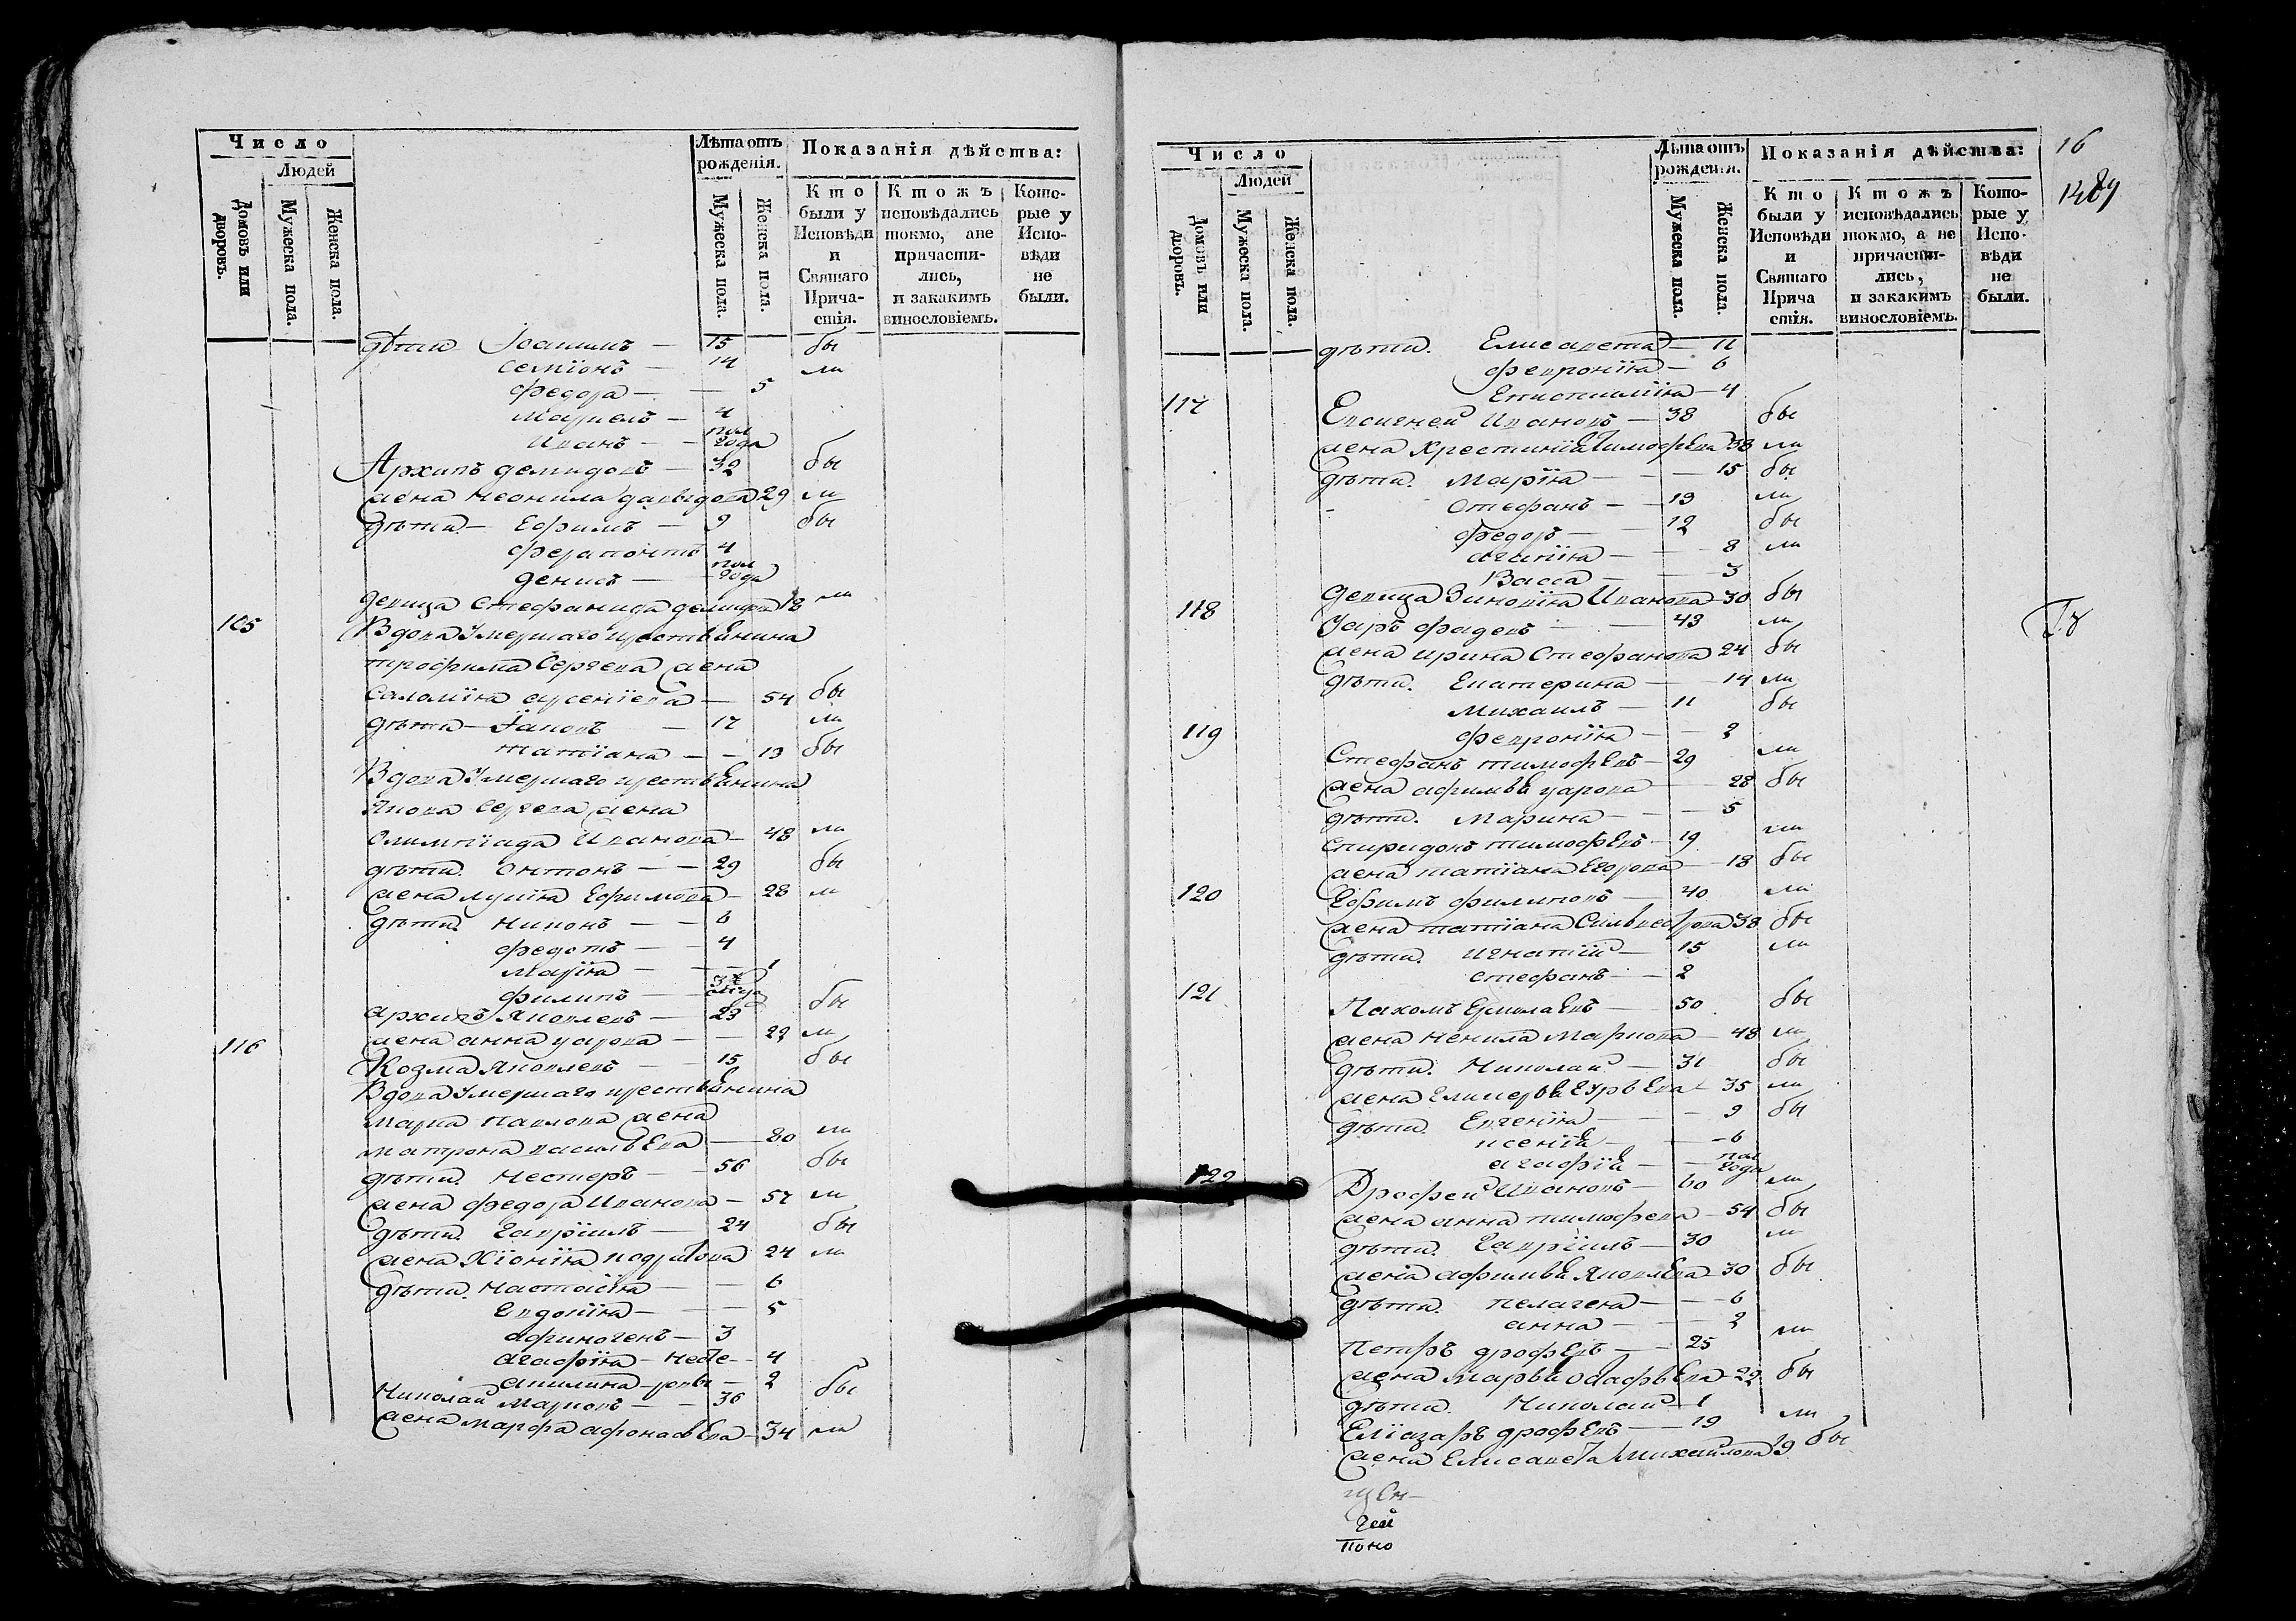 Число
Людей
Домовъ или дворовъ.
Мужеска пола.
Женска пола.
Лѣта отъ рожденія.
Мужеска пола.
Женска пола.
Показанія дѣйства:
Кто были у Исповѣди и Святаго Причастія.
Ктожъ исповѣдались токмо, ане причастились, и закакимъ винословіемъ.
Которые у Исповѣди не были.
дѣти Іоакимъ — 15 бы
Семіонъ — 14 ли
Федора — 5
4
Иванъ — пол года
Архипъ Демидовъ — 32 бы
жена Неонила Давыдова 29 ли
дѣти — Ефимъ — 9 бы
Ферапонтъ 4
Денисъ — пол года
девица Стефанида 18 ли
105 Вдова Умершаго крестьЕнина
трофима Сергева жена
Саломіна арсенїева — 54 бы
дѣти — Іаковъ — 17 ли
татїана — 19 бы
Вдова Умершаго крестьЕнина
Якова Сергева жена
Олимпїада Иванова — 48 ли
дѣти. Антонъ — 29 бы
жена Лукїа Ефимова — 28 ли
дѣти. Никонъ — 6
Федотъ — 4
Марїа — 1
Филипъ — 3х
Архипъ Яковлевъ — 23 бы
жена анна уарова — 22 ли
116 Козма Яковлевъ — 15 бы
Вдова Умершаго крестьЕнина
Марка Павлова жена
Матрона васильЕва — 80 ли
дѣти. Нестеръ — 56 бы
жена Федора Иванова — 57 ли
дѣти. Гаврїилъ — 24 бы
жена Хїонїа 24 ли
дѣти. Настасїа — 6
Евдокїа — 5
афиногенъ — 3
агафїа — 4
акилина — 2
Николай Марковъ — 36 бы
жена марфа афонасьЕва — 34 ли
Число
Людей
Домовъ или дворовъ.
Мужеска пола.
Женска пола.
Лѣта отъ рожденія.
Мужеска пола.
Женска пола.
Показанія дѣйства:
Кто были у Исповѣди и Святаго Прича стія.
Ктожъ исповѣдались токмо, а не причастились, и закакимъ винословіемъ.
Которые у Исповѣди не были.
16
дѣти. Елисавета — 11
Февронїа — 6
4
117 Евсигней Ивановъ — 38 бы
жена Хрестинїа ТимофЕва 38 ли
дѣти. Марїа — 15 бы
Стефанъ — 19 ли
Федоръ — 12 бы
агапїа — 8 ли
Васса — 3
девица Зиновїа Иванова 30 бы
118 Уаръ Фадевъ — 43 ли
жена Ирина Стефанова 24 бы
дѣти. Екатерина — 14 ли
Михаилъ — 11 бы
Февронїа — 2
119 Стефанъ тимофЕвъ — 29 ли
жена афимьЕ уарова 28 бы
дѣти. Марина — 5
Спиридонъ тимофЕвъ — 19 ли
жена татїана Егорова — 18 бы
120 Ефимъ филиповъ — 40 ли
жена татїана 38 бы
дѣти. Игнатїй — 15 ли
Стефанъ — 2
121 Пахомъ ЕрмолаЕвъ — 50 бы
жена Ненила Маркова — 48 ли
дѣти. Николай — 31 бы
жена ГурьЕва — 35 ли
дѣти. Евгенїа — 9 бы
ксенїа — 6
агафїа — пол года
122 Дрофей Ивановъ — 60 ли
жена анна тимофева — 54 бы
дѣти. Гаврїилъ — 30 ли
жена афимьЕ ЯковлЕва — 30 бы
дѣти. пелагеа — 6
анна — 2
Петръ дрофЕвъ — 25 ли
жена Марьѣ 22 бы
дѣти. Николай — 1
Елїазаръ дрофЕвъ — 19 ли
жена Елисавета Михайлова 19 бы
щЕн-
гей
Поно